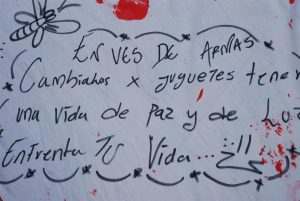 EN VES DE ARMAS
Cambiahos x juguetes tener
una vida de Paz y de Lu
Enfrenta Tu Vida...!!